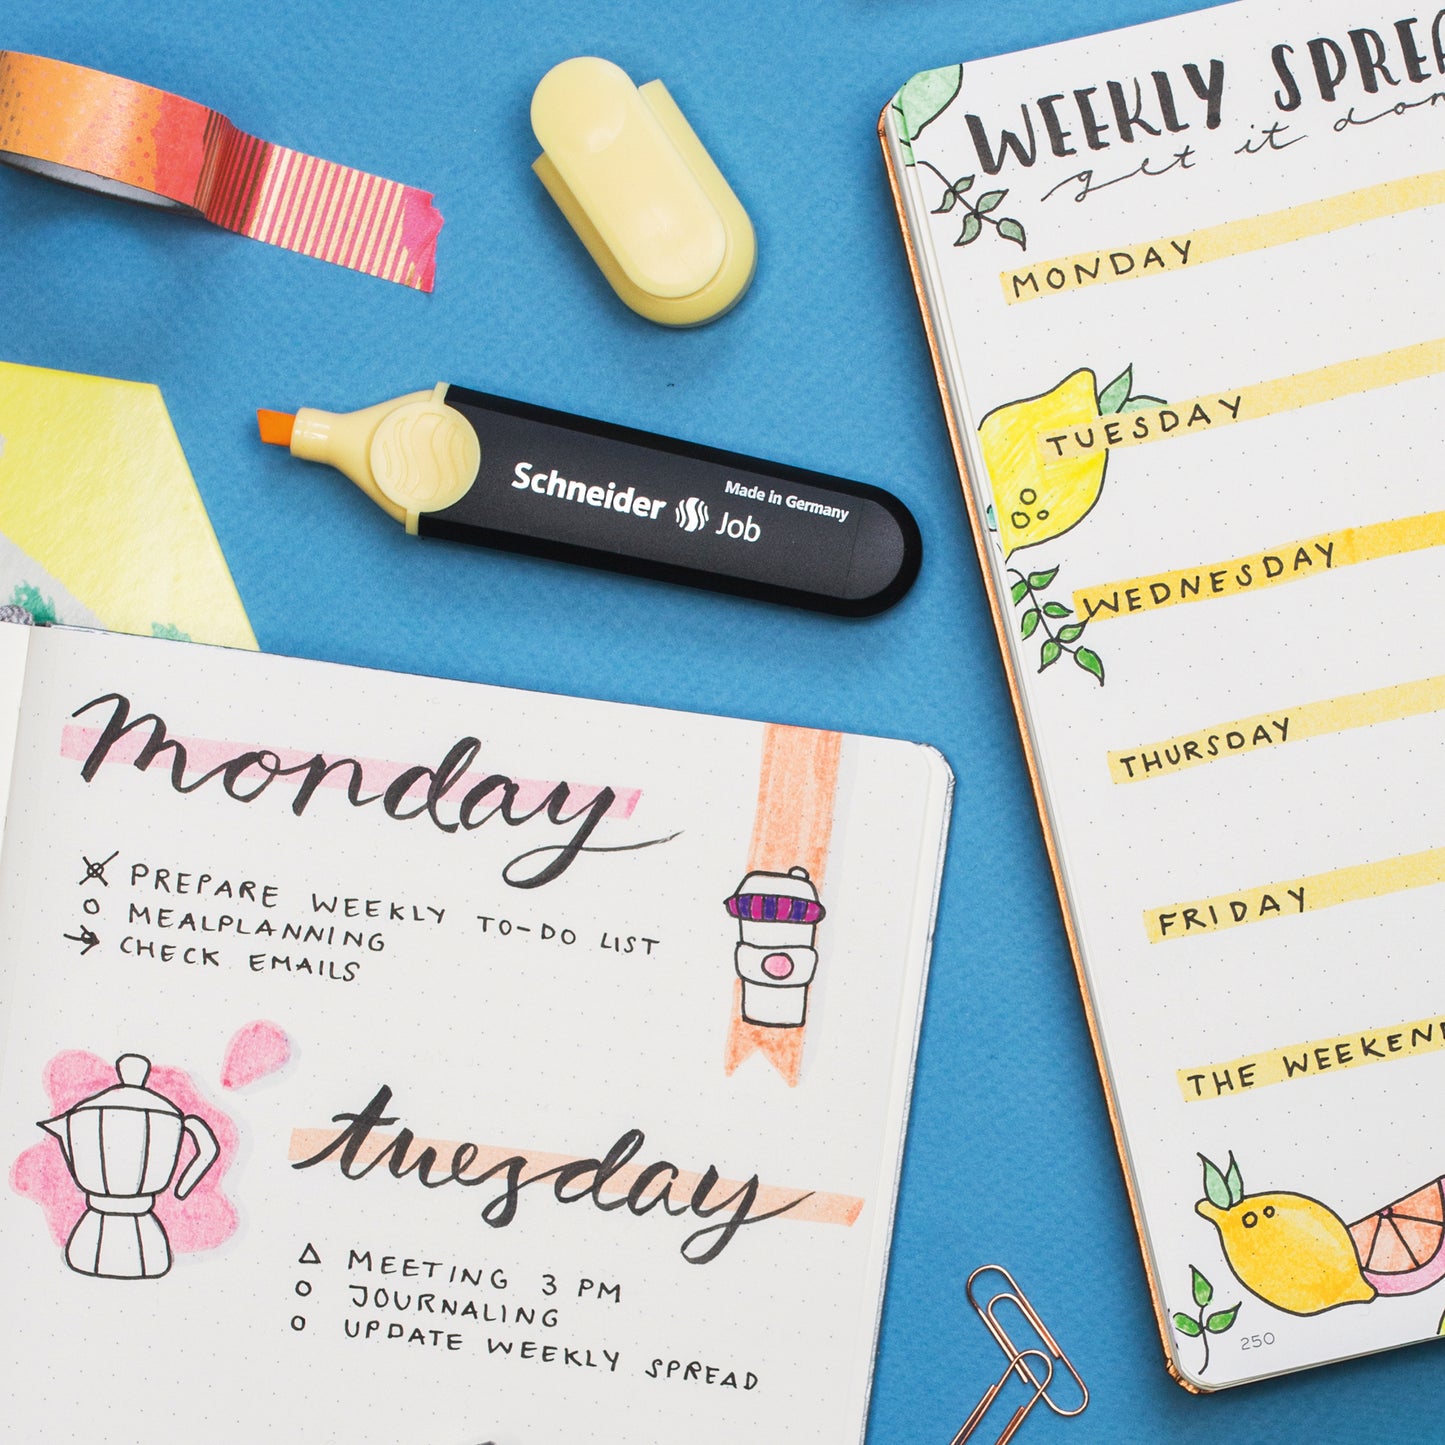 WEEKLY
get it
MONDAY
TUESDAY
WEDNESDAY
THURSDAY
FRIDAY
THE
250
Schneider Job
Made in Germany
monday
PREPARE WEEKLY TO-DO LIST
MEALPLANNING
CHECK EMAILS
tuesday
MEETING 3 PM
JOURNALING
UPDATE WEEKLY SPREAD